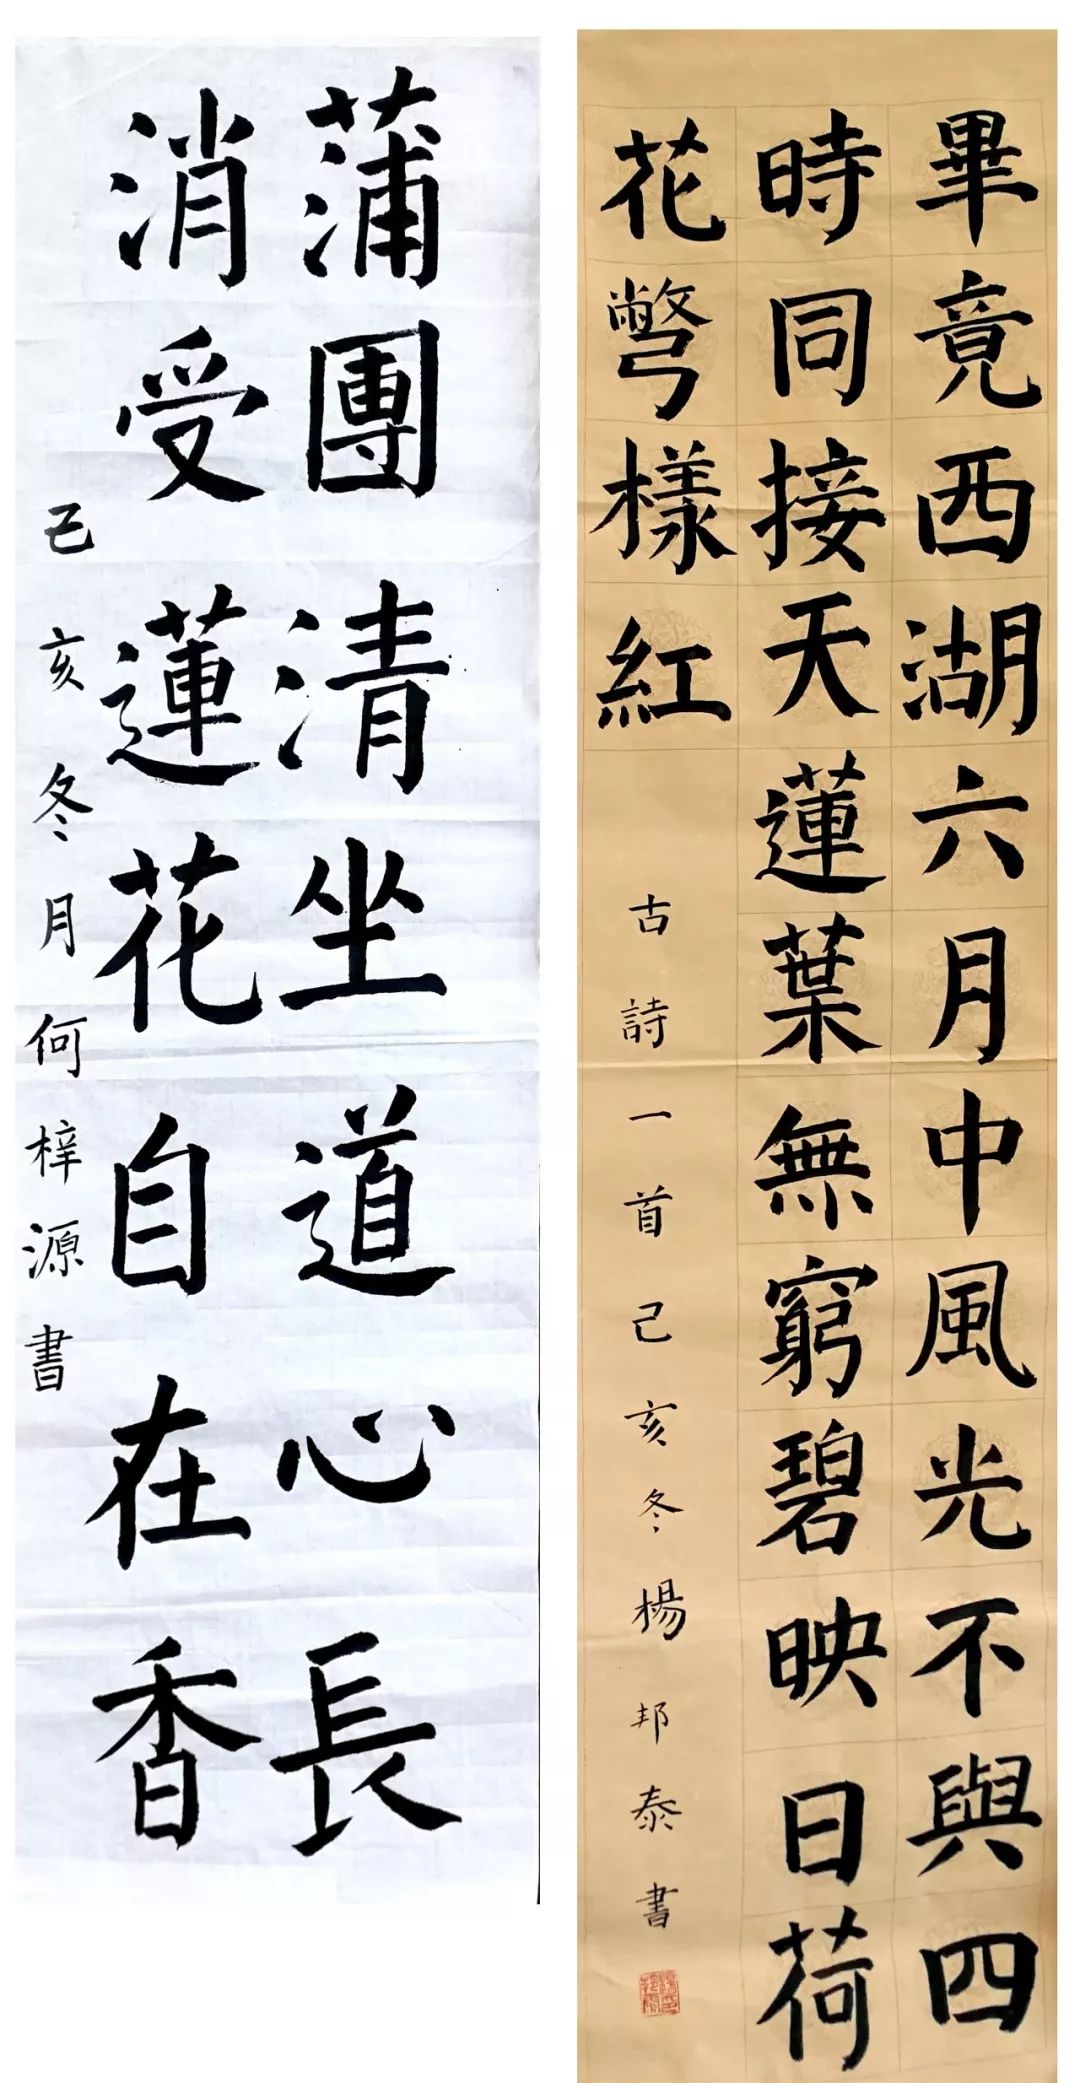 蒲團清坐道心長
消受蓮花自在香
己亥冬月何梓源書
畢竟西湖六月中風光不與四
時同接天蓮葉無窮碧映日荷
花彆樣紅
古詩一首己亥冬楊邦泰書